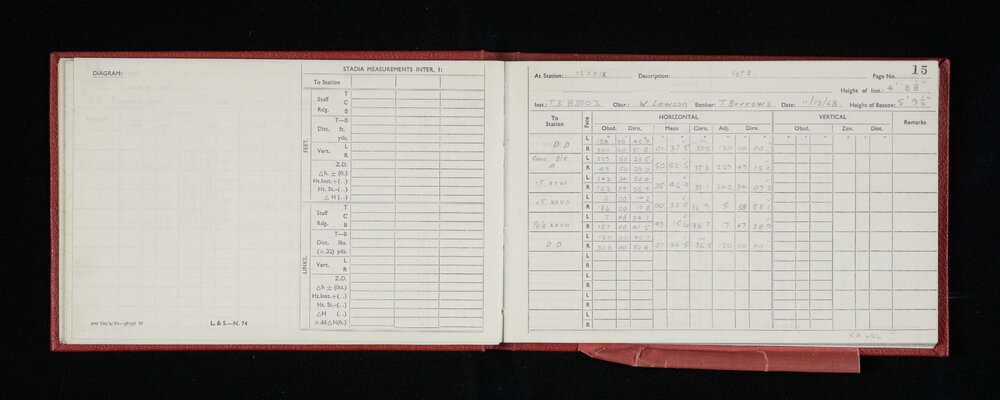 DIAGRAM:
STADIA MEASUREMENTS INTER. 1:
To Station
FEET.
Staff T
C
Rdg. B
T—B
Dist. ft.
yds.
Vert. L
R
Z.D.
Δh. ± (ft.)
Ht.Inst.+(..)
Ht. St.—(..)
Δ H (..)
LINKS.
Staff T
C
Rdg. B
T—B
Dist. lks.
(×.22) yds.
Vert. L
R
Z.D.
Δh ± (lks.)
Ht.Inst+(..)
Ht. St.—(..)
ΔH (..)
×.66ΔH(ft.)
L. & S.—N. 74
At Station: Description: SET 2. Page No. 15
Height of Inst.: 4' 8
Inst.: T3 83003 Obsr.: W Lawson Booker: T Burrows Date: 11/12/68. Height of Beacon: 5' 9
To Station Face HORIZONTAL VERTICAL Remarks
Obsd. Dirn. Mean Corn. Adj. Dirn. Obsd. Zen. Dist.
D.D L 120 00
R 300 00 51.8 01 37.5 37.5 120 00 00
Conc. Blk L 229 50 23.5
A. R 49 50 29.0 50 52.5 37.3 229 49 15.2
IT XXVI L 342 34 50.0
R 162 34 56.4 35 46.4 37.1 342 34 09.3
IT XXVII L 6 00 14.2
R 186 00 17.8 00 32.0 36.9 5 58 55.1
Pole L 7 48 34.1
R 187 48 41.5 49 15.6 36.7 7 47 38.9
D.D. L 120 00
R 300 00 50.8 01 36.5 36.5 120 00 00
L
R
L
R
L
R
L
R